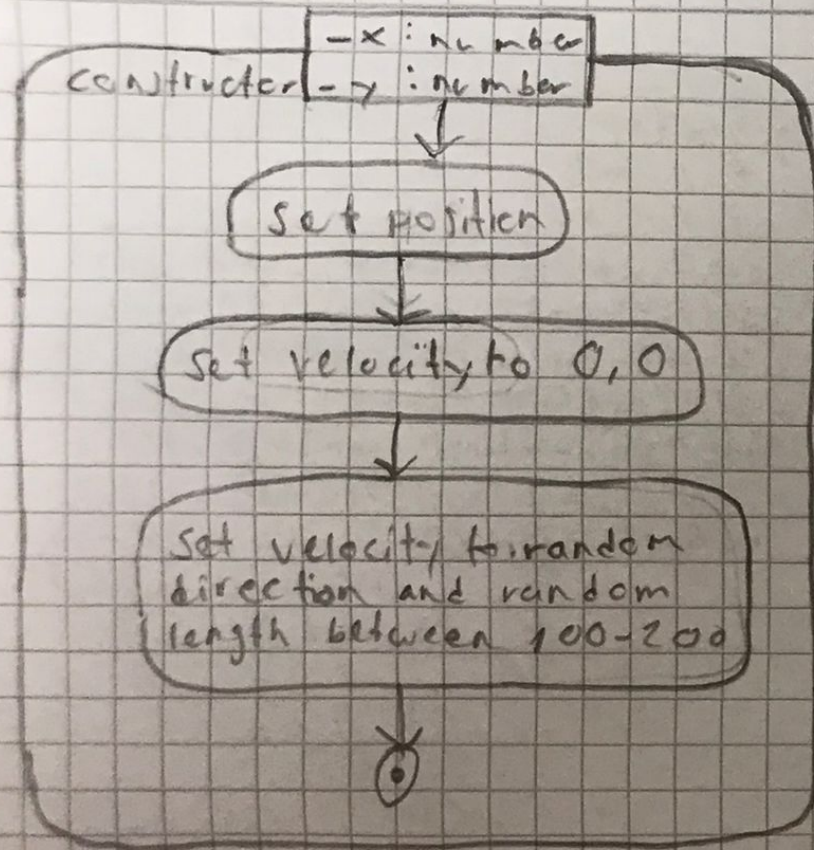 - x : number
constructor - y : number
set position
set velocity to 0,0
set velocity to random
direction and random
length between 100-200